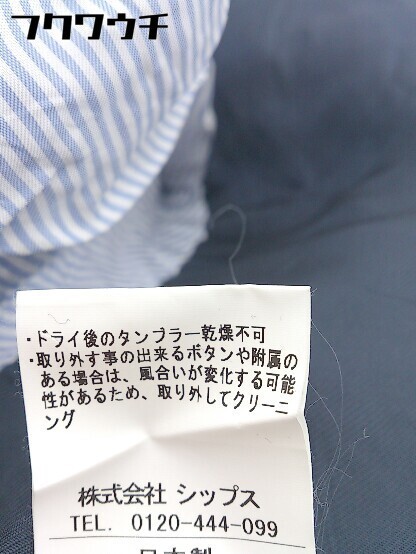 フクワウチ
・ドライ後のタンブラー乾燥不可
・取り外す事の出来るボタンや附属の
ある場合は、風合いが変化する可能
性があるため、取り外してクリーニ
ング
株式会社 シップス
TEL. 0120-444-099
日本製